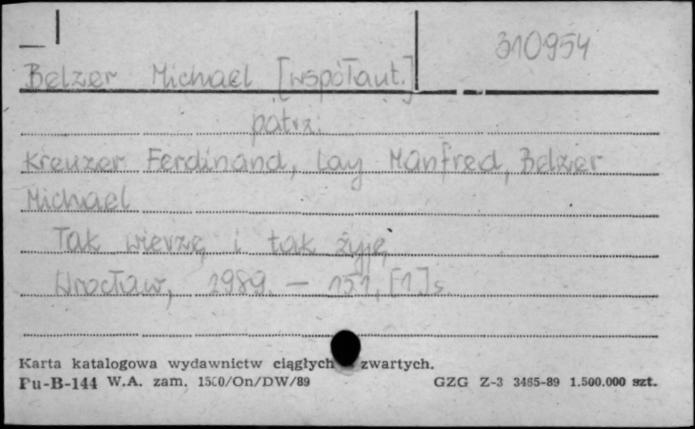 310954
Belzer Michael [współaut.]
patrz.
Kreuzer Ferdinand, Lay Manfred, Belzer
Michael
Tak wierzę i tak żyję
Wrocław, 1989. — 151, [1] s.
Karta katalogowa wydawnictw ciągłych zwartych.
Pu-B-144 W.A. zam. 1500/On/DW/89 GZG Z-3 3465-89 1.500.000 szt.